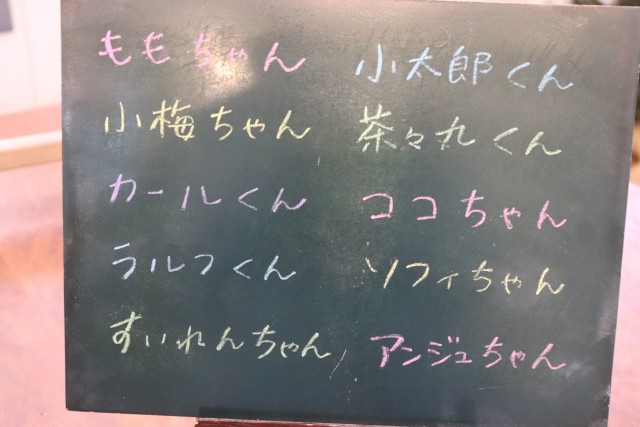 ももちゃん 小太郎くん
小梅ちゃん 茶々丸くん
カールくん ココちゃん
ラルフくん ソフィちゃん
すいれんちゃん アンジュちゃん